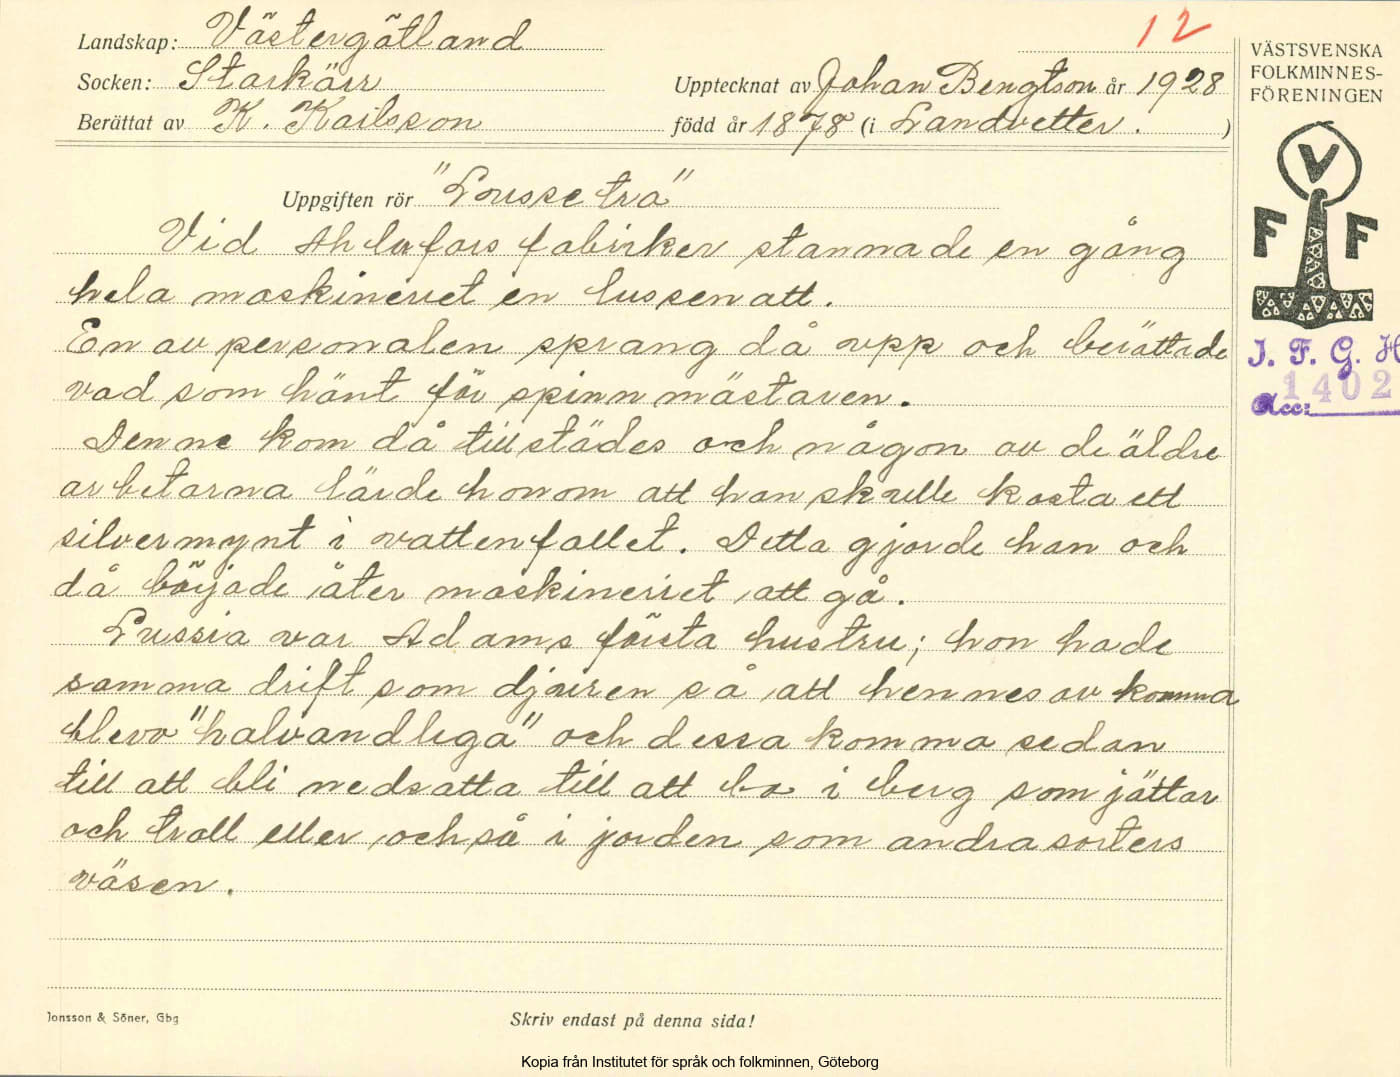 Landskap: Västergötland
12
Socken: Starkärr
Upptecknat av Johan Bengtson år 1928
Berättat av K. Karlsson
född år 1878 (i Landvetter.)
VÄSTSVENSKA
FOLKMINNES-
FÖRENINGEN
V
F F
I. F. G. H
1402
Acc:
Uppgiften rör "Lussetro"
Vid Ahlafors fabriker stannade en gång
hela maskineriet en lussenatt.
En av personalen sprang då upp och berättade
vad som hänt för spinnmästaren.
Denne kom då tillstädes och någon av de äldre
arbetarna lärde honom att han skulle kasta ett
silvermynt i vattenfallet. Detta gjorde han och
då började åter maskineriet att gå.
Lussia var Adams första hustru; hon hade
samma drift som djuren så att hennes avkomma
blevo "halvandliga" och dessa komma sedan
till att bli nedsatta till att bo i berg som jättar
och troll eller också i jorden som andra sorters
väsen.
Jonsson & Söner, Gbg
Skriv endast på denna sida!
Kopia från Institutet för språk och folkminnen, Göteborg